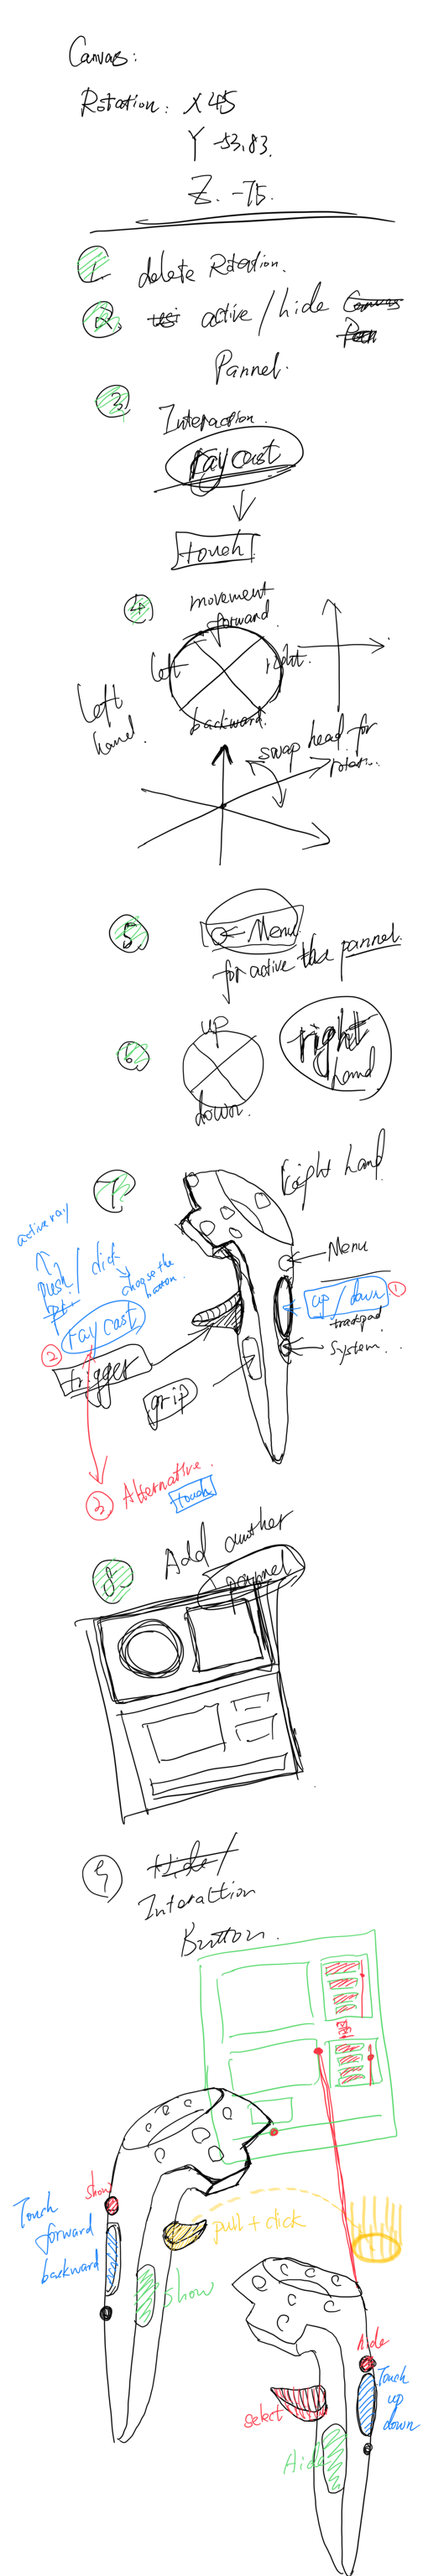 Canvas:
Rotation: X 45
Y -53.83.
Z. -75.
1. delete Rotation.
2. active / hide Canvas
Pannel.
3 Interaction.
raycast
touch
4. movement
forward
left right.
backward.
left
hand.
swap head for
rotation.
5 Menu
for active the pannel.
6. up right
hand
down.
7 right hand
active ray
push / click
choose the
button.
Menu
up / down 1
trackpad
raycast
2
System.
trigger
grip
3 Alternative.
touch
8 Add another
pannel
9 Hide /
Interaction
Button.
Show
Touch
forward
backward
pull + click
Show
Hide
Touch
up
down
select
Hide